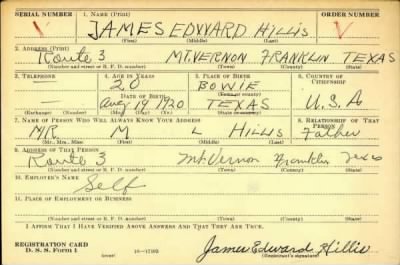 SERIAL NUMBER 1. NAME (Print) ORDER NUMBER
JAMES EDWARD HILLIS
(First) (Middle) (Last)
2. ADDRESS (Print)
Route 3 MT. VERNON FRANKLIN TEXAS
(Number and street or R. F. D. number) (Town) (County) (State)
3. TELEPHONE 4. AGE IN YEARS 5. PLACE OF BIRTH 6. COUNTRY OF CITIZENSHIP
— 20 BOWIE
DATE OF BIRTH (Town or county)
— Aug 19 1920 TEXAS U.S.A
(Exchange) (Number) (Mo.) (Day) (Yr.) (State or country)
7. NAME OF PERSON WHO WILL ALWAYS KNOW YOUR ADDRESS 8. RELATIONSHIP OF THAT PERSON
MR M L HILLIS Father
(Mr., Mrs., Miss) (First) (Middle) (Last)
9. ADDRESS OF THAT PERSON
Route 3 Mt. Vernon Franklin Texas
(Number and street or R. F. D. number) (Town) (County) (State)
10. EMPLOYER'S NAME
Self
11. PLACE OF EMPLOYMENT OR BUSINESS
(Number and street or R. F. D. number) (Town) (County) (State)
I AFFIRM THAT I HAVE VERIFIED ABOVE ANSWERS AND THAT THEY ARE TRUE.
REGISTRATION CARD
D. S. S. Form 1 (over) James Edward Hillis
(Registrant's signature)